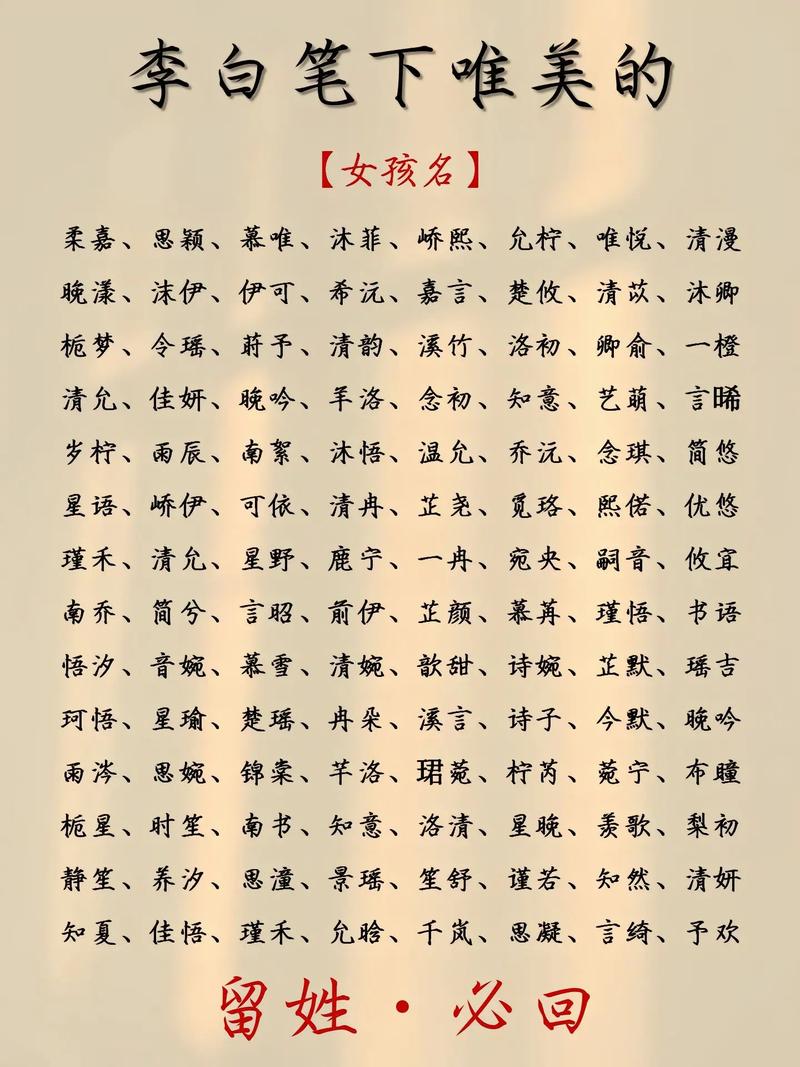 李白笔下唯美的
【女孩名】
柔嘉、思颖、慕唯、沐菲、峤熙、允柠、唯悦、清漫
晚漾、沫伊、伊可、希沅、嘉言、楚攸、清苡、沐卿
栀梦、令瑶、莳予、清韵、溪竹、洛初、卿俞、一橙
清允、佳妍、晚吟、羊洛、念初、知意、艺萌、言晞
岁柠、雨辰、南絮、沐悟、温允、乔沅、念琪、简悠
星语、峤伊、可依、清冉、芷尧、觅珞、熙偌、优悠
瑾禾、清允、星野、鹿宁、一冉、宛央、嗣音、攸宜
南乔、简兮、言昭、前伊、芷颜、慕苒、瑾悟、书语
悟汐、音婉、慕雪、清婉、歆甜、诗婉、芷默、瑶吉
珂悟、星瑜、楚瑶、冉朵、溪言、诗子、今默、晚吟
雨涔、思婉、锦棠、芊洛、珺菀、柠芮、菀宁、布瞳
栀星、时笙、南书、知意、洛清、星晚、羡歌、梨初
静笙、养汐、思潼、景瑶、笙舒、谨若、知然、清妍
知夏、佳悟、瑾禾、允晗、千岚、思凝、言绮、予欢
留姓·必回